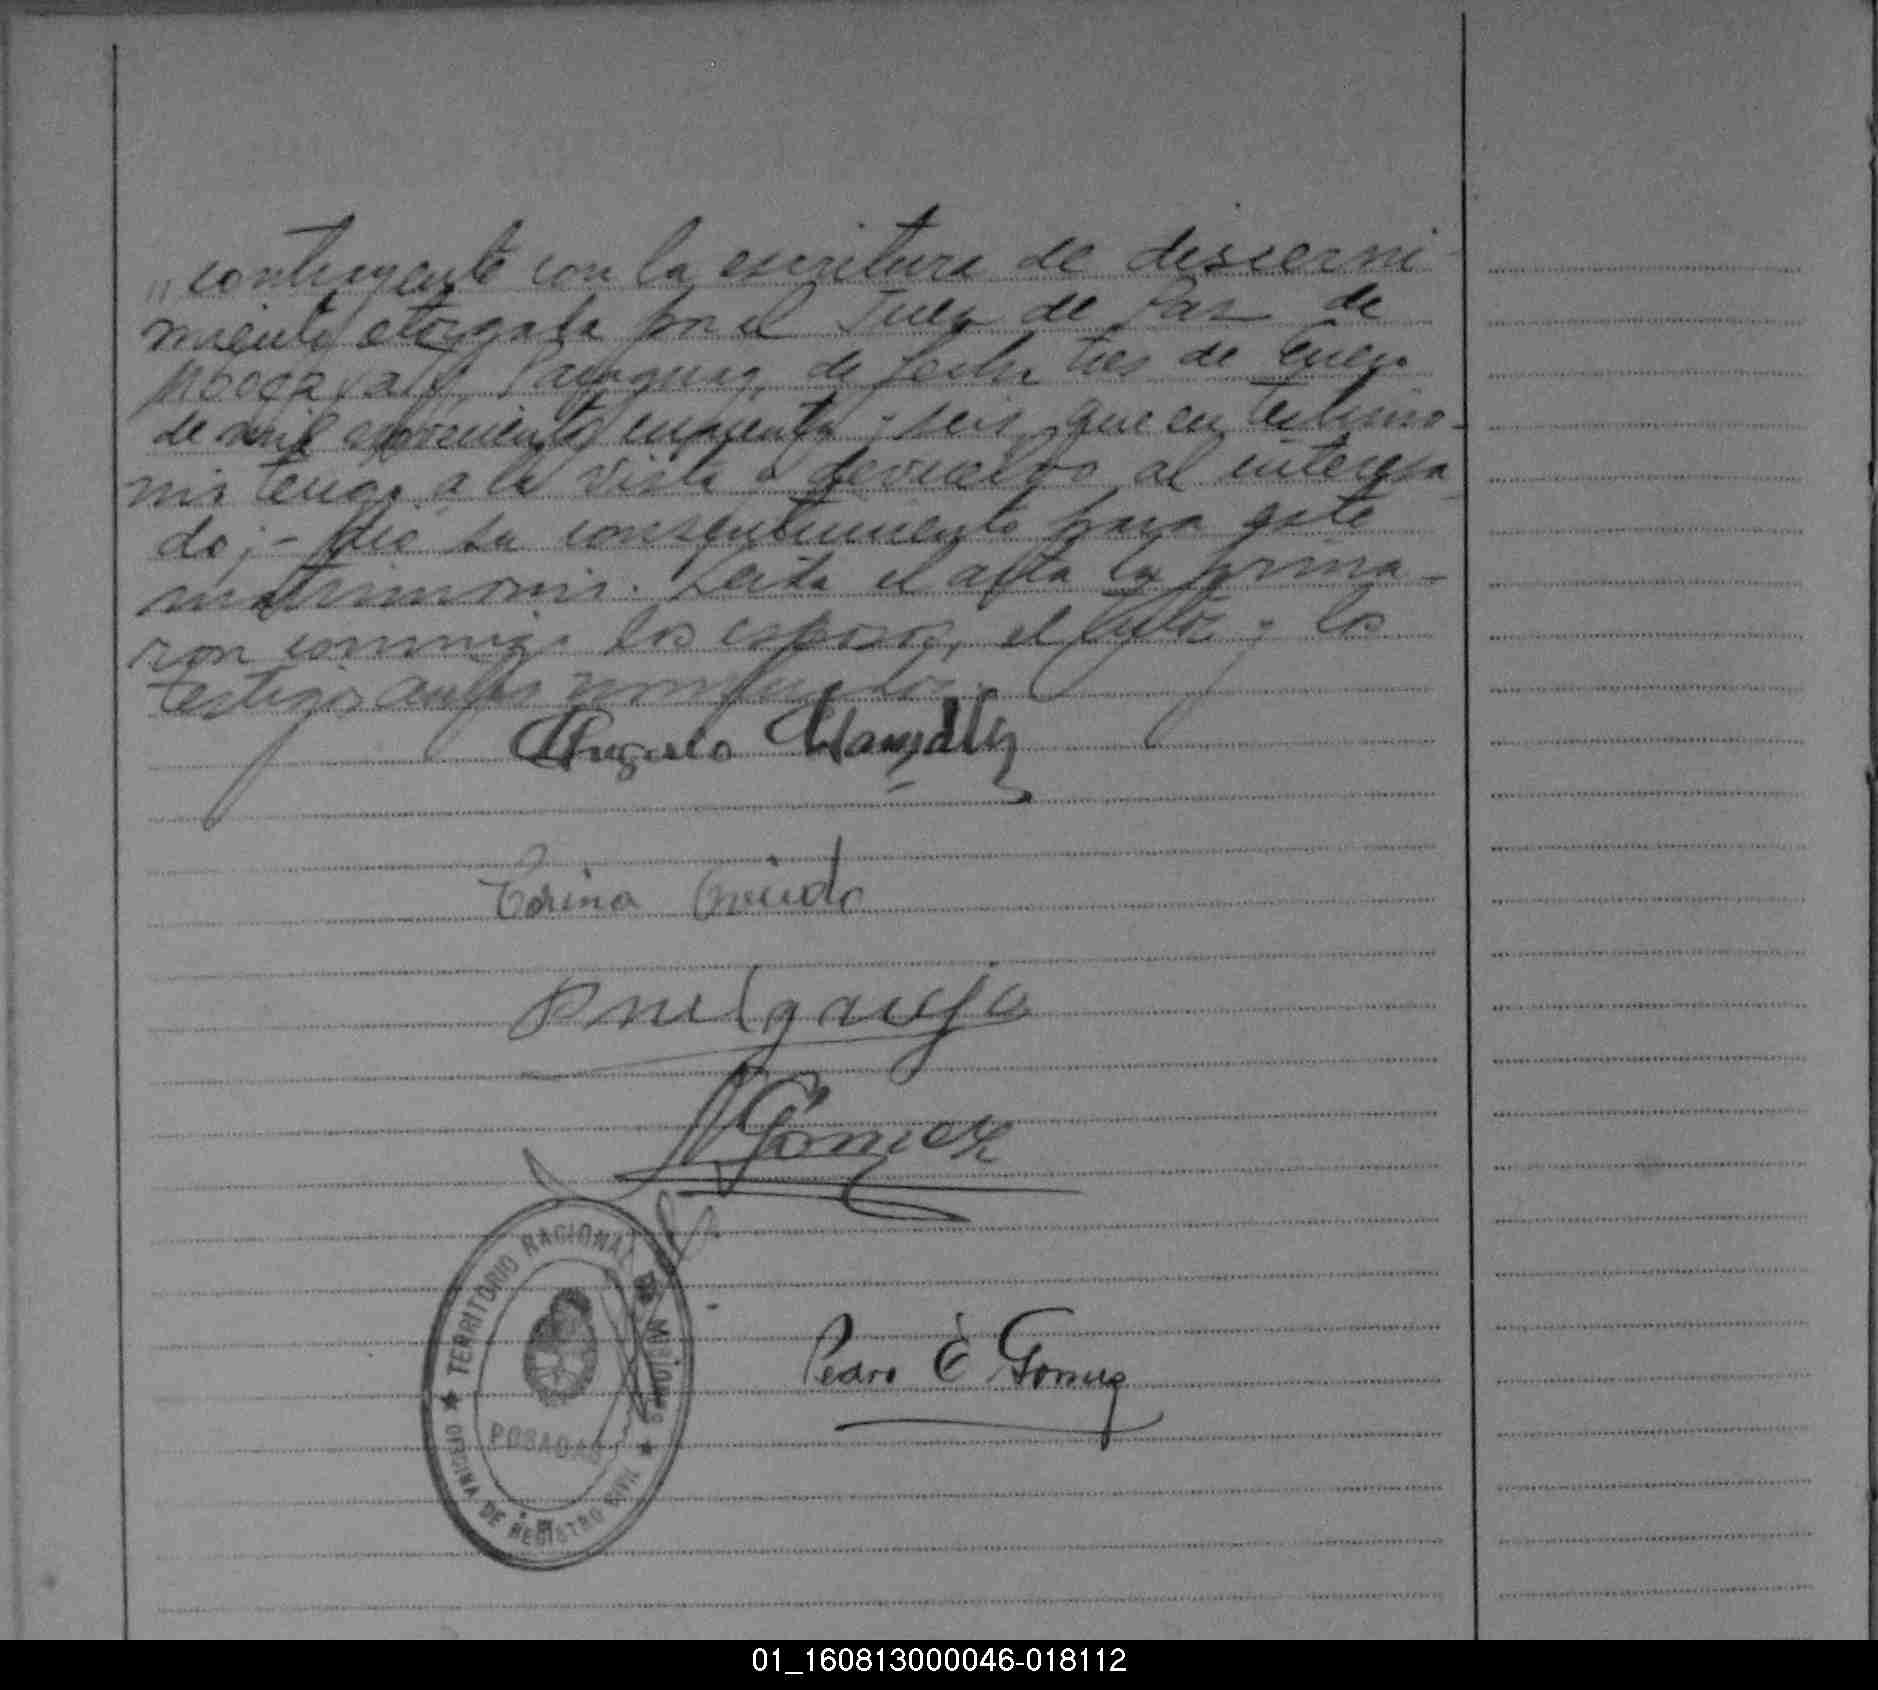 contrayente con la escritura de discerni
miento otorgada por el Juez de Paz de
Paraguay, de fecha tres de Enero
de mil novecientos cincuenta y seis, que en testimo-
nio tengo a la vista devuelvo al interesa
do;- dio su consentimiento para este
matrimonio. Leida el acta la firma-
ron conmigo los esposos, el tutor y los
testigos antes nombrados.
Oviedo
Gómez
TERRITORIO NACIONAL DE MISIONES
POSADAS
OFICINA DE REGISTRO CIVIL
Pedro E Gomez
01_160813000046-018112